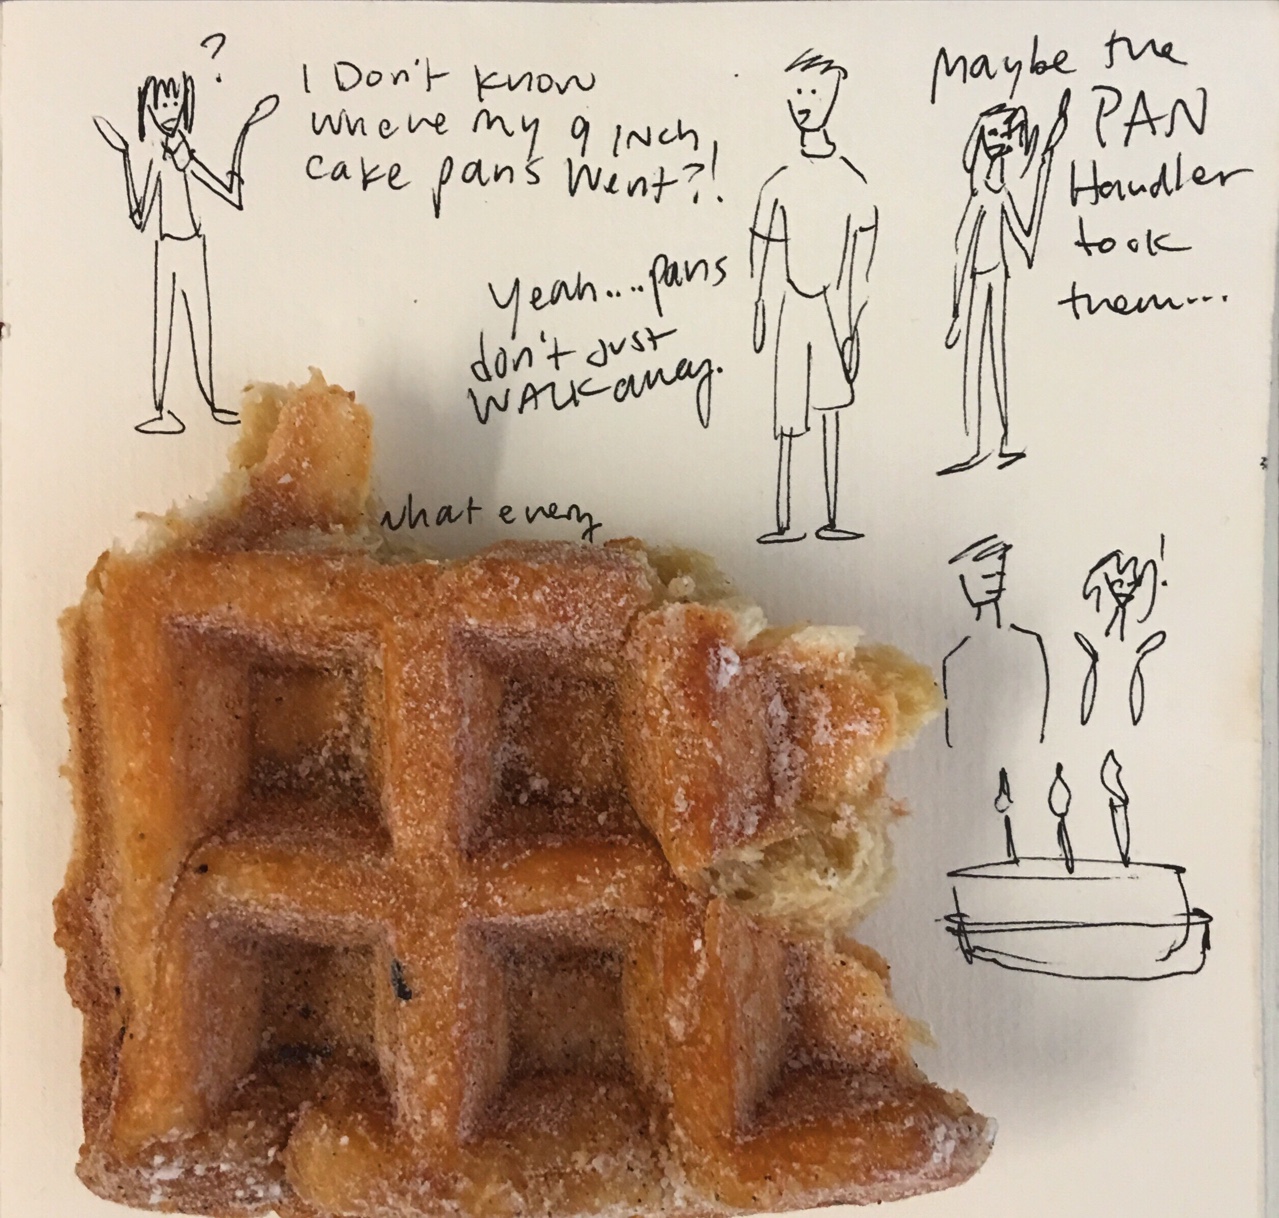 ?
I Don't know
where my 9 inch
cake pans went?!
Yeah....pans
don't just
WALK away.
Maybe the
PAN
Handler
took
them...
what every
!